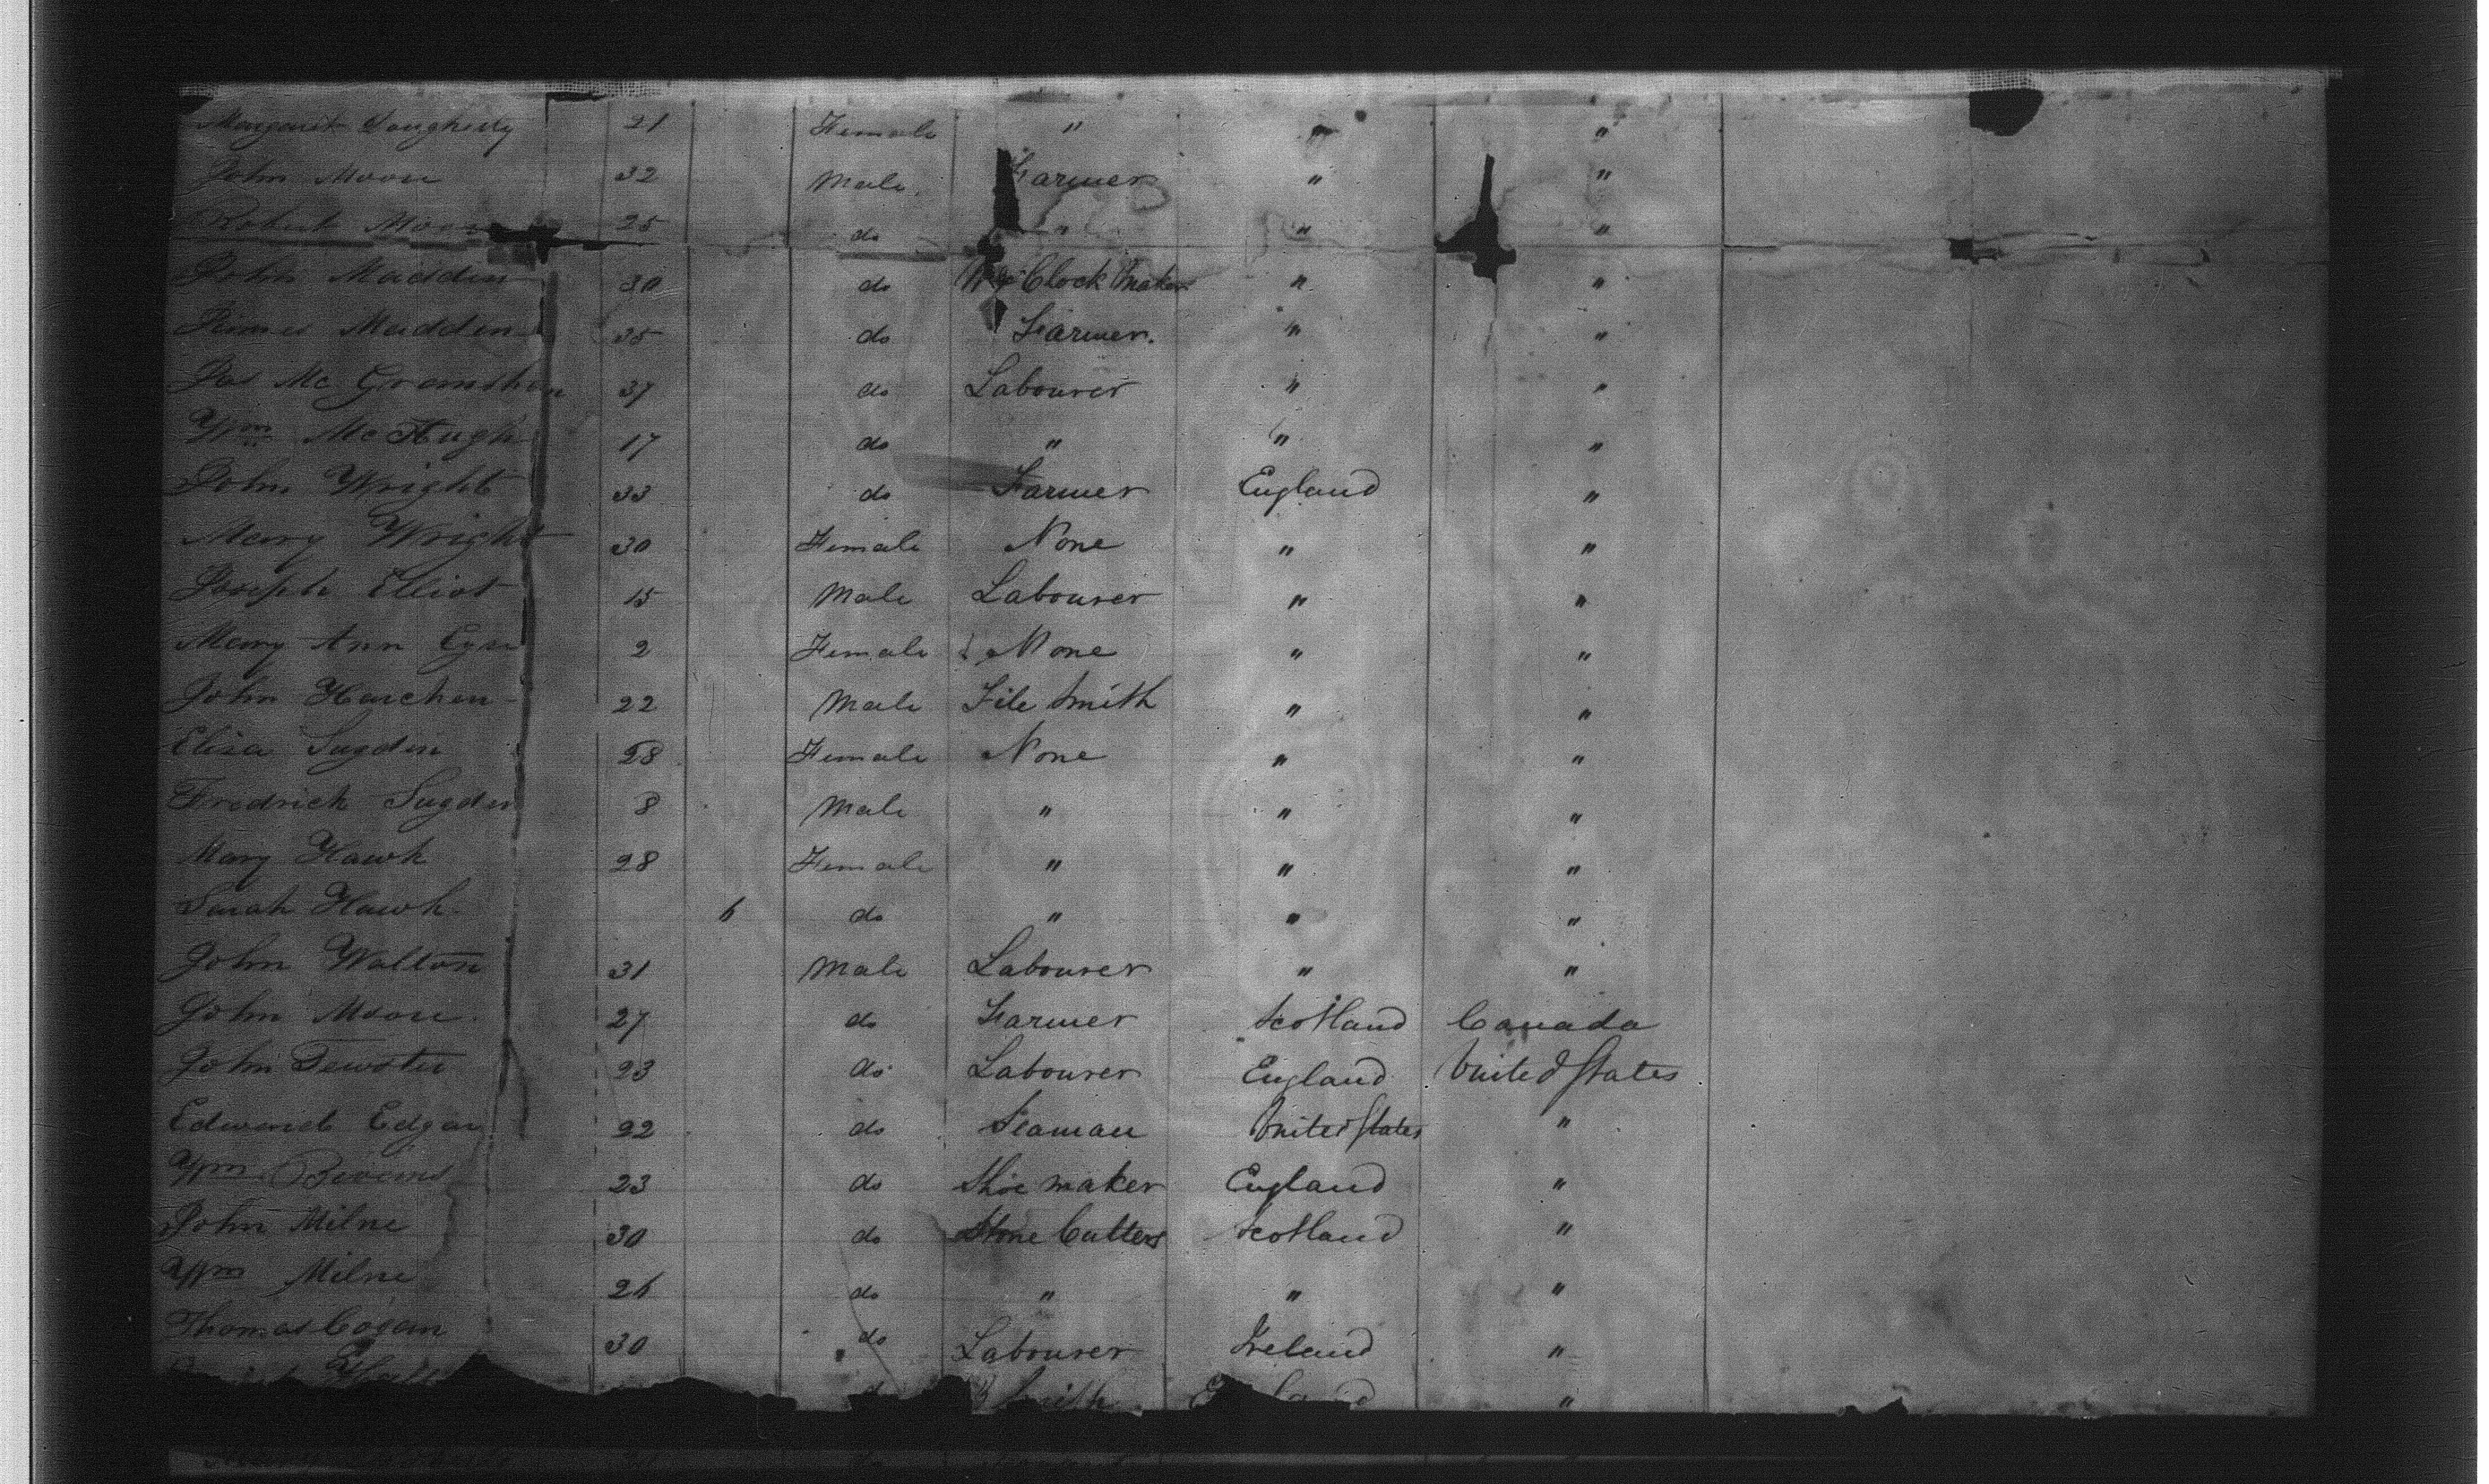 Margaret Dougherty 21 Female " " "
John Moore 32 Male Farmer " "
Robert Moore 25 do " " "
John Madden 30 do W & Clock Maker " "
James Madden 35 do Farmer. " "
Jas Mc 37 do Labourer " "
Wm McHugh 17 do " " "
John Wright 33 do Farmer England "
Mary Wright 30 Female None " "
Joseph Elliot 15 Male Labourer " "
Mary Ann 2 Female None " "
John 22 Male File Smith " "
Eliza Sugden 28 Female None " "
Fredrick Sugden 8 Male " " "
Mary Hawk 28 Female " " "
Sarah Hawk 6 do " " "
John Walton 31 Male Labourer " "
John Moore 27 do Farmer Scotland Canada
John 23 do Labourer England United States
Edward Edgar 22 do Seaman United States "
Wm 23 do Shoe maker England "
John Milne 30 do Stone Cutters Scotland "
Wm Milne 26 do " " "
Thomas Cogan 30 do Labourer Ireland "
do Smith England "